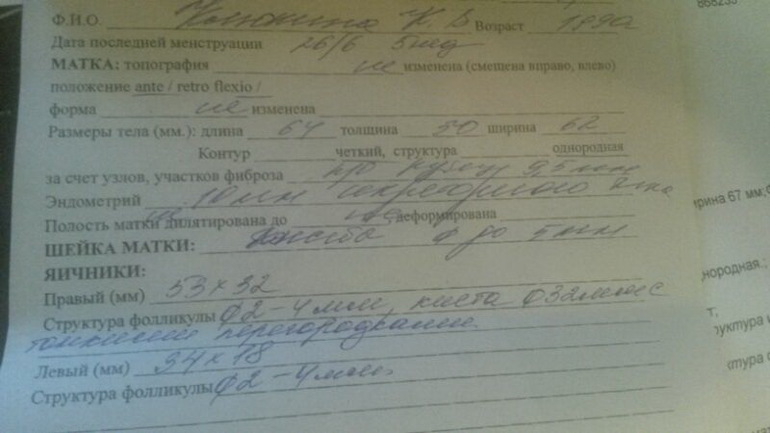 868235
Ф.И.О. К. В Возраст 1990
Дата последней менструации 26/6 5нед
МАТКА: топография не изменена (смещена вправо, влево)
положение ante / retro flexio /
форма не изменена
Размеры тела (мм.): длина 64 толщина 50 ширина 62
Контур четкий, структура однородная
за счет узлов, участков фиброза п/о рубец 9,5 мм
Эндометрий 10 мм секреторного типа
Полость матки не дилятирована до не деформирована
ШЕЙКА МАТКИ: кисты ф до 5 мм
ЯИЧНИКИ:
Правый (мм) 53 х 32
Структура фолликулы ф2-4мм, киста ф32мм с
тонкими перегородками.
Левый (мм) 34 х 18
Структура фолликулы ф2-4мм.
рина 67 мм;
нородная.;
руктура